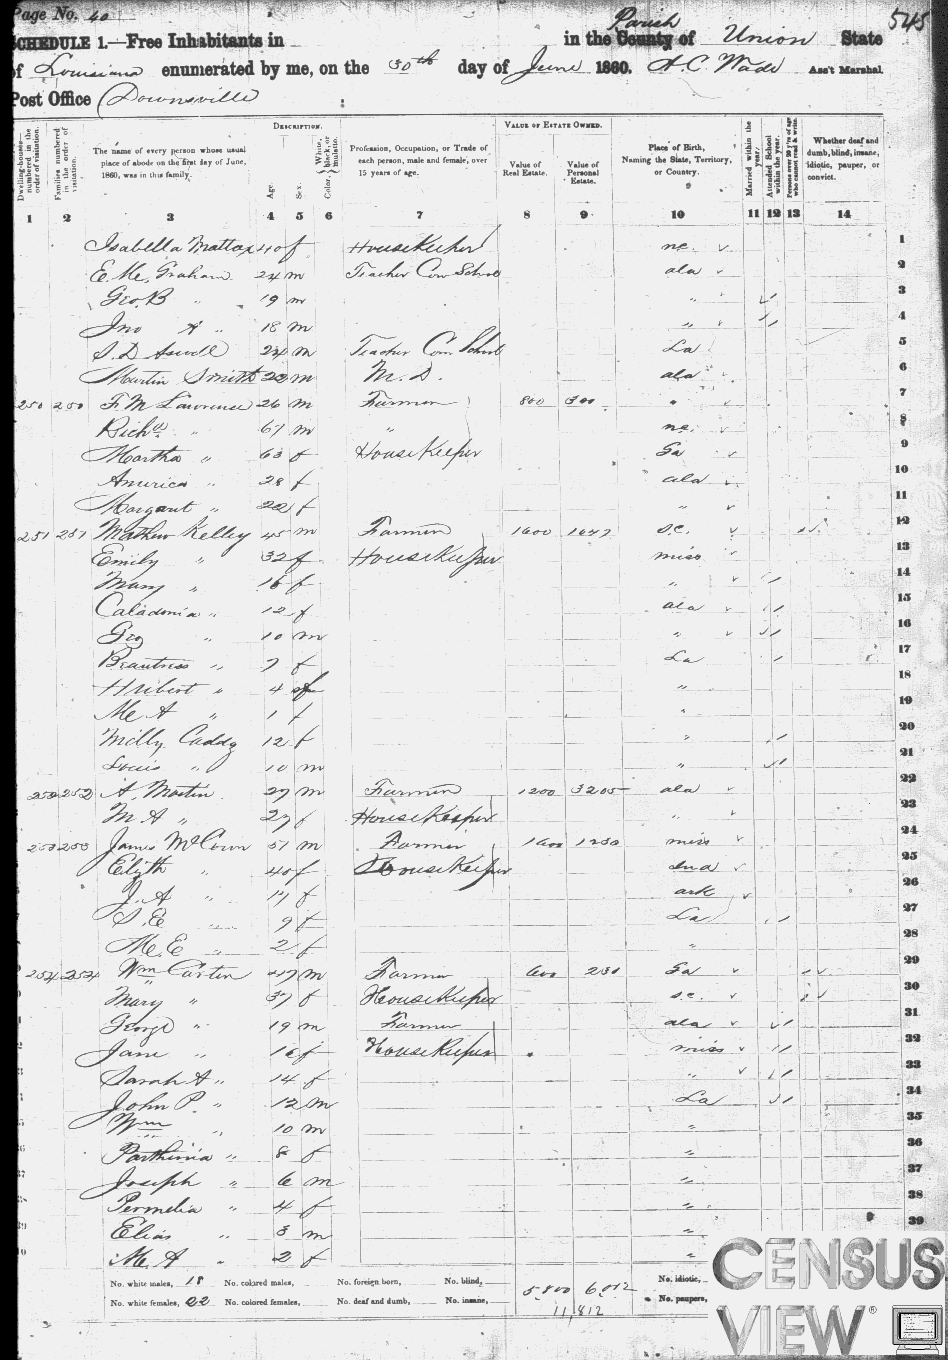 Page No. 40
545
SCHEDULE 1.—Free Inhabitants in in the County of Parish Union State
of Louisiana enumerated by me, on the 30th day of June 1860. A. C. Wade Ass't Marshal.
Post Office Downsville
Dwelling-houses numbered in the order of visitation.
Families numbered in the order of visitation.
The name of every person whose usual place of abode on the first day of June, 1860, was in this family.
DESCRIPTION.
Age.
Sex.
Color, White, black, or mulatto.
Profession, Occupation, or Trade of each person, male and female, over 15 years of age.
VALUE OF ESTATE OWNED.
Value of Real Estate.
Value of Personal Estate.
Place of Birth, Naming the State, Territory, or Country.
Married within the year.
Attended School within the year.
Persons over 20 y'rs of age who cannot read & write.
Whether deaf and dumb, blind, insane, idiotic, pauper, or convict.
1 2 3 4 5 6 7 8 9 10 11 12 13 14
Isabella Mattox 40 f HouseKeeper nc 1
E. Mc Graham 24 m Teacher Com School ala 2
Geo. B " 19 m " / 3
Jno A " 18 m " / 4
S. D Aswell 24 m Teacher Com School La 5
Martin Smith 23 m M. D. ala 6
250 250 F. M Lawrence 26 m Farmer 800 300 " 7
Richd " 67 m " nc 8
Martha " 63 f HouseKeeper Ga 9
America " 28 f ala 10
Margaret " 22 f " 11
251 251 Mathew Kelley 45 m Farmer 1600 1647 S.C. / 12
Emily " 32 f HouseKeeper miss 13
Mary " 16 f " / 14
Caladonia " 12 f ala / 15
Geo " 10 m " / 16
Beautress " 7 f La / 17
Hribert " 4 f " 18
Mc A " 1 f " 19
Milly Caddy 12 f " / 20
Louis " 10 m " / 21
252 252 A. Martin 27 m Farmer 1200 3205 ala 22
M. A " 27 f HouseKeeper " 23
253 253 James McCown 51 m Farmer 1600 1250 miss 24
Elizth " 40 f HouseKeeper Ind 25
J. A " 17 f ark 26
S. E " 9 f La / 27
M. E " 2 f " 28
254 254 Wm Carter 47 m Farmer 600 230 Ga / 29
Mary " 37 f HouseKeeper S.C. / 30
George " 19 m Farmer ala / 31
Jane " 16 f HouseKeeper miss / 32
Sarah A " 14 f " / 33
John P. " 12 m La / 34
Wm " 10 m " 35
Parthinia " 8 f " 36
Joseph " 6 m " 37
Permelia " 4 f " 38
Elias " 3 m " 39
M. A " 2 f "
No. white males, 18 No. colored males, No. foreign born, No. blind, 5,800 6,012 No. idiotic,
No. white females, 22 No. colored females, No. deaf and dumb, No. insane, 11,812 No. paupers,
CENSUS
VIEW®